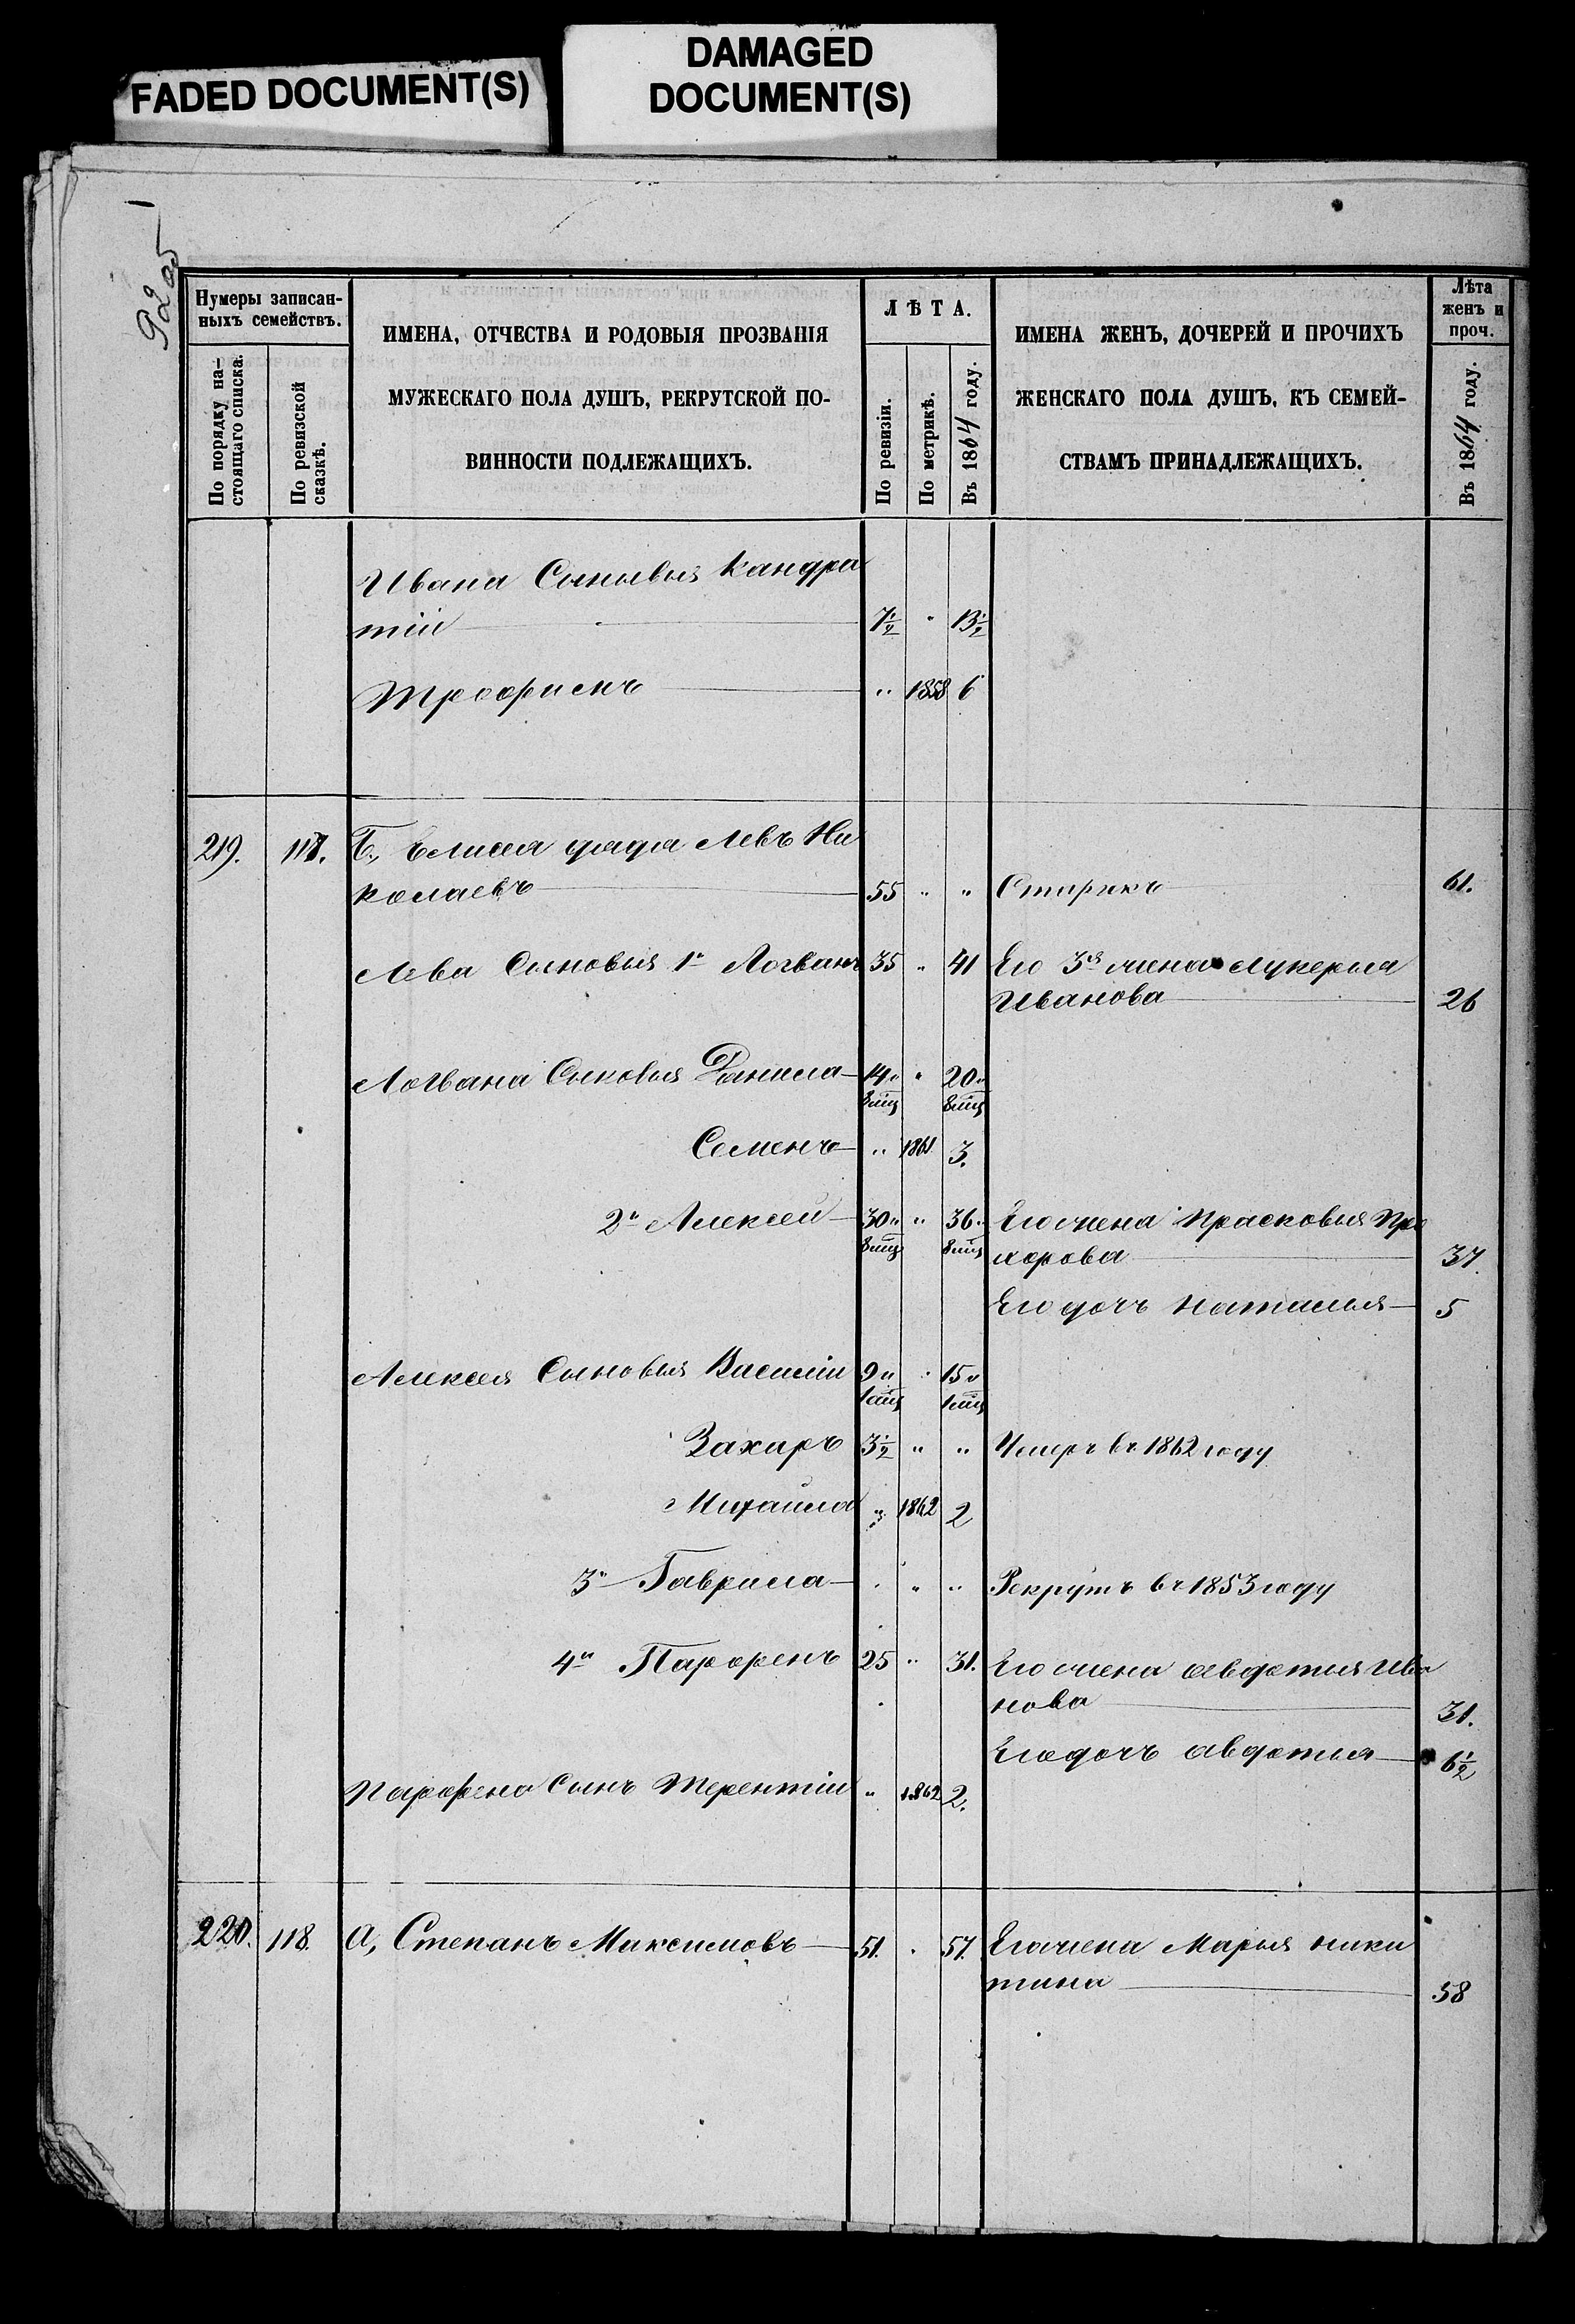 FADED DOCUMENT(S)
DAMAGED
DOCUMENT(S)
Нумеры записан-
ныхъ семействъ.
По порядку на-
стоящаго списка.
По ревизской
сказкѣ.
ИМЕНА, ОТЧЕСТВА И РОДОВЫЯ ПРОЗВАНІЯ
МУЖЕСКАГО ПОЛА ДУШЪ, РЕКРУТСКОЙ ПО-
ВИННОСТИ ПОДЛЕЖАЩИХЪ.
ЛѢТА.
По ревизіи.
По метрикѣ.
Въ 1864 году.
ИМЕНА ЖЕНЪ, ДОЧЕРЕЙ И ПРОЧИХЪ
ЖЕНСКАГО ПОЛА ДУШЪ, КЪ СЕМЕЙ-
СТВАМЪ ПРИНАДЛЕЖАЩИХЪ.
Лѣта
женъ и
проч.
Въ 1864 году.
Ивана Сыновья Кандра
тій 7½ " 13½
Трофимъ " 1858 6
219. 117. Б, Елисея дядя Левъ Ни
колаевъ 55 " " Старикъ 61.
Лева Сыновья 1й Логванъ 35 " 41 Его 3я жена Лукерья
Иванова 26
Логвана Сыновья Данила 14 и " 20 и
8 мец 8 мец
Семенъ " 1861 3.
2й Алексей 30 и " 36 и Его жена Прасковья Про
8 мец 8 мец хорова 37
Его дочь Наталья 5
Алексея Сыновья Василій 9 и " 15 и
1 мец 1 мец
Захаръ 3½ " " Умеръ въ 1862 году
Михайла " 1862 2
3й Гаврила " " " Рекрутъ въ 1853 году
4й Парфенъ 25 " 31. Его жена Авдотья Ива
нова 31.
Его дочь Авдотья 6½
Парфена Сынъ Терентій " 1862 2.
220. 118. А, Степанъ Максимовъ 51. " 57. Его жена Марья Ники
тина 58